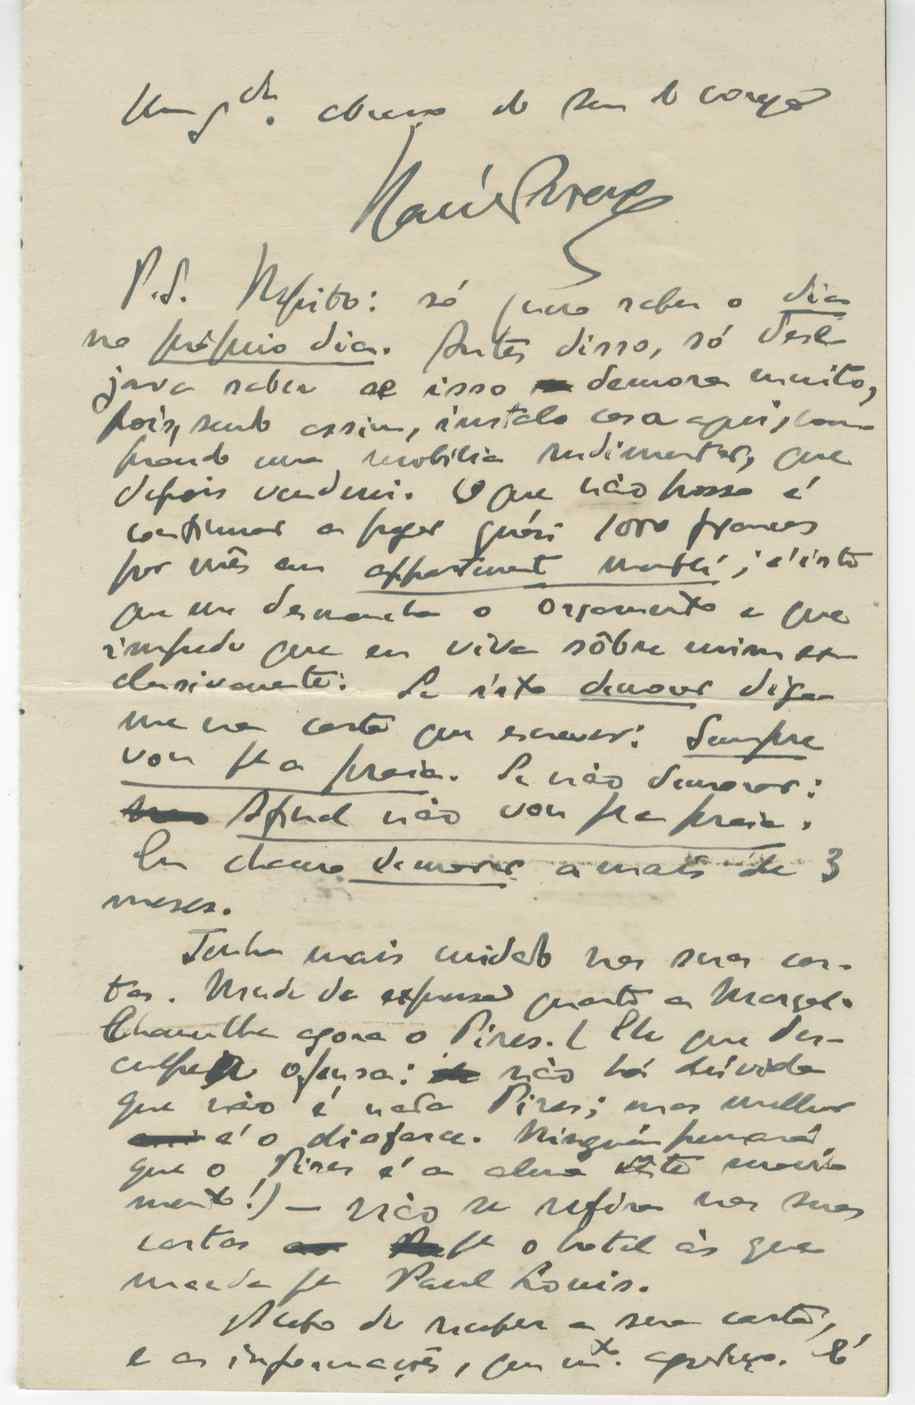 Um gde. abraço do seu do coração
P.S. Repito: só quero saber o dia
no próprio dia. Antes disso, só dese-
java saber se isso demora muito,
pois, sendo assim, instalo casa aqui, com-
prando uma mobília rudimentar, que
depois venderei. O que não posso é
continuar a pagar quási 1000 francos
por mês em appartement meublé; é isto
que me desmancha o orçamento e que
impede que eu viva sôbre mim ex-
clusivamente. Se isto demorar diga-
me na carta que escrever: Sempre
vou pa a praia. Se não demorar:
Afinal não vou pa a praia.
Eu chamo demorar a mais de 3
meses.
Tenha mais cuidado nas suas car-
tas. Mude de expressão quanto a
Chame-lhe agora o Pires. (Ele que des-
culpe a ofensa: não há dúvida
que não é nada Pires; mas melhor
é o disfarce. Ninguém pensará
que o Pires é a alma deste movi-
mento!) — não se refira nas suas
cartas pa o hotel às que
manda pa Paul Louis.
Acabo de receber a sua carta,
e as informações, que mto. agradeço. É